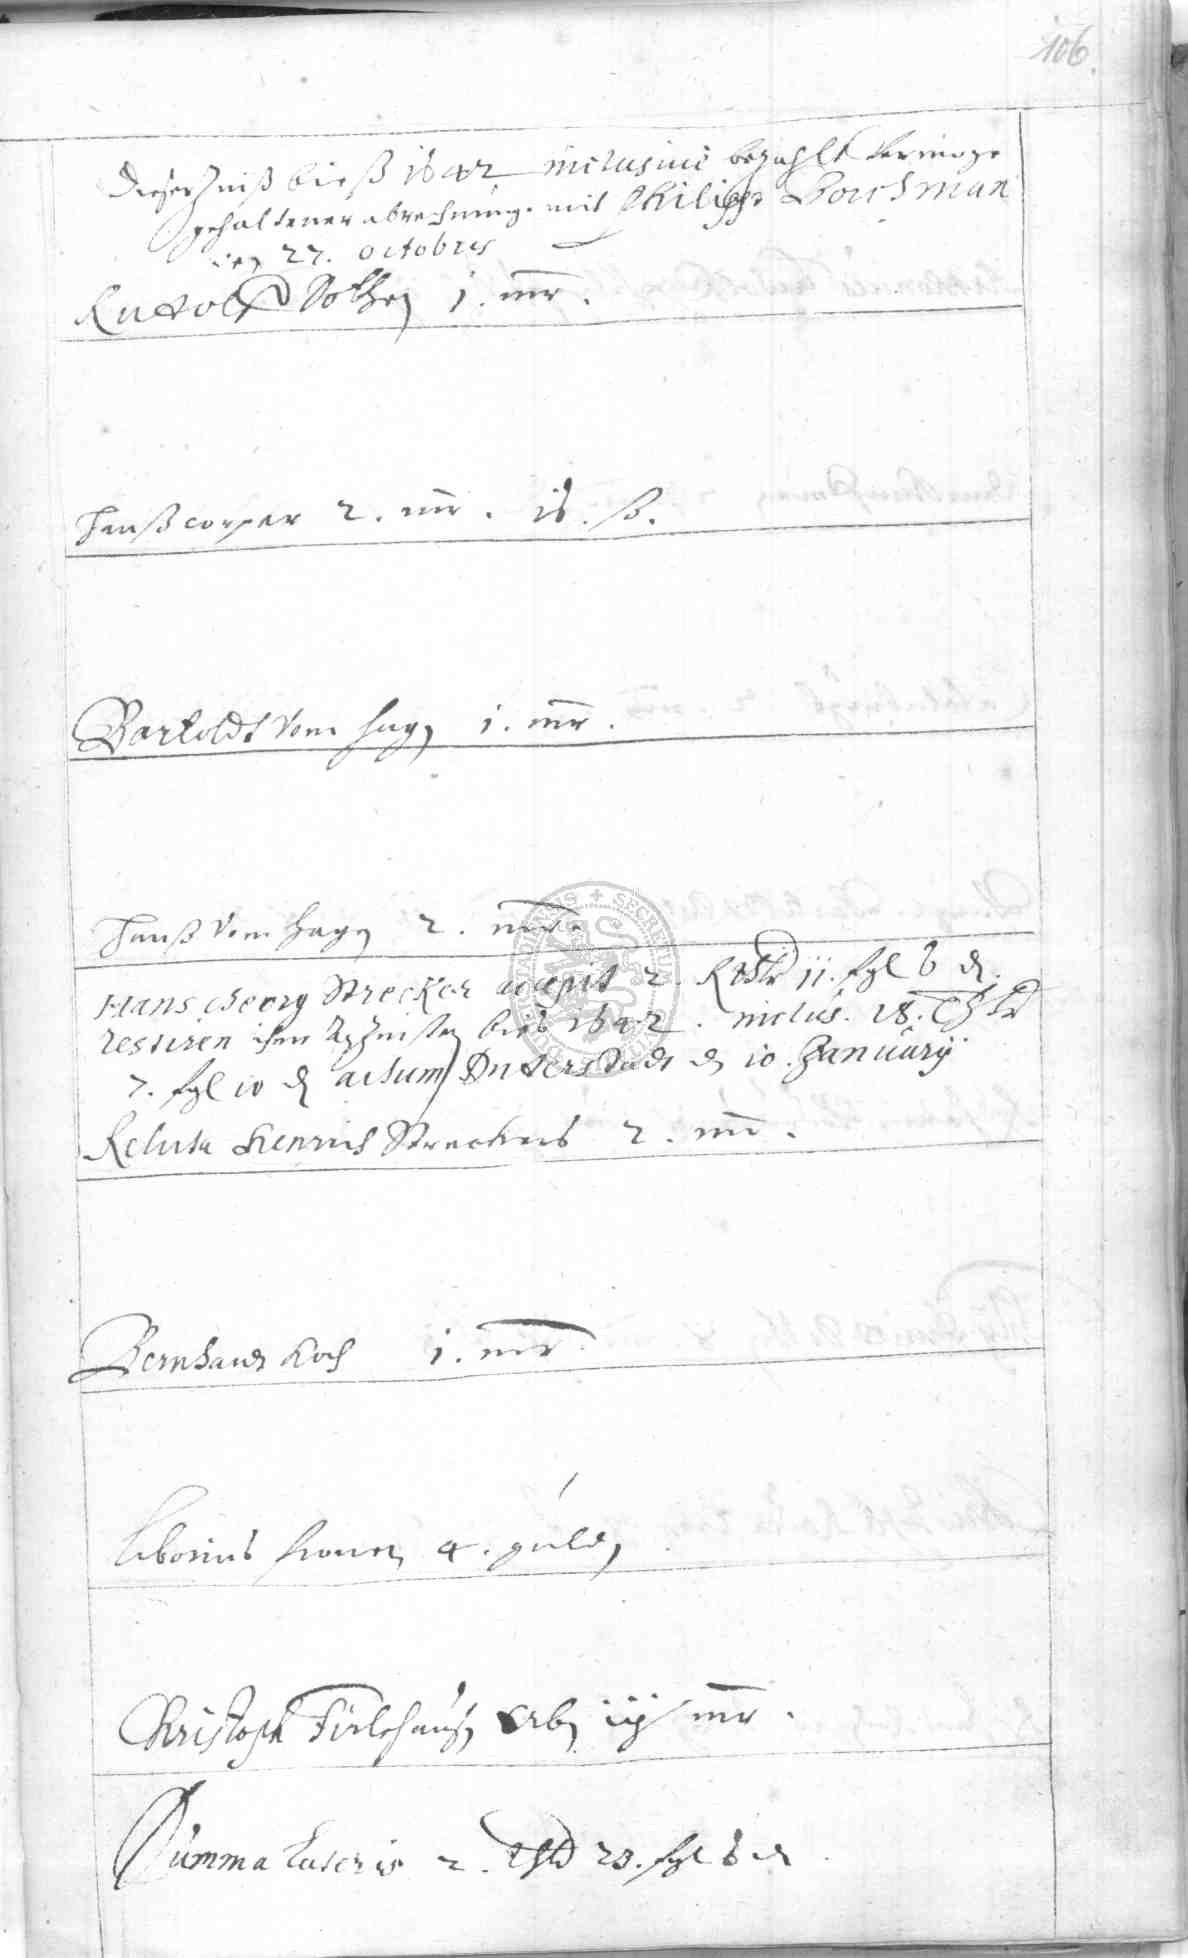 106.
dieser Zinß bieß 1642 inclusiue bezahlt vermoge
gehaltener abrechnung. mit Philipps Borchman
den 27. octobris
Rudolff Bothen 1. mr.
Hanß corper 2. mr. 16. ß.
Bartoldt vom Hagen 1. mr.
Hanß vom Hagen 2. mr.
Hans Georg Strecker accepit 2. Rthlr 11. ßgl 6 d.
restiren ihm an Zinsen bieß 1642. inclus. 18. Thlr
7. ßgl 10 d actum Duderstadt d 10. January
Relicta Henrich Streckers 2. mr.
Bernhardt Koch 1. mr.
Liborius 4. gulden
Christoph Firlehausen Erben iij mr.
Summa Lateris 2. thlr 23. ßgl 6 d